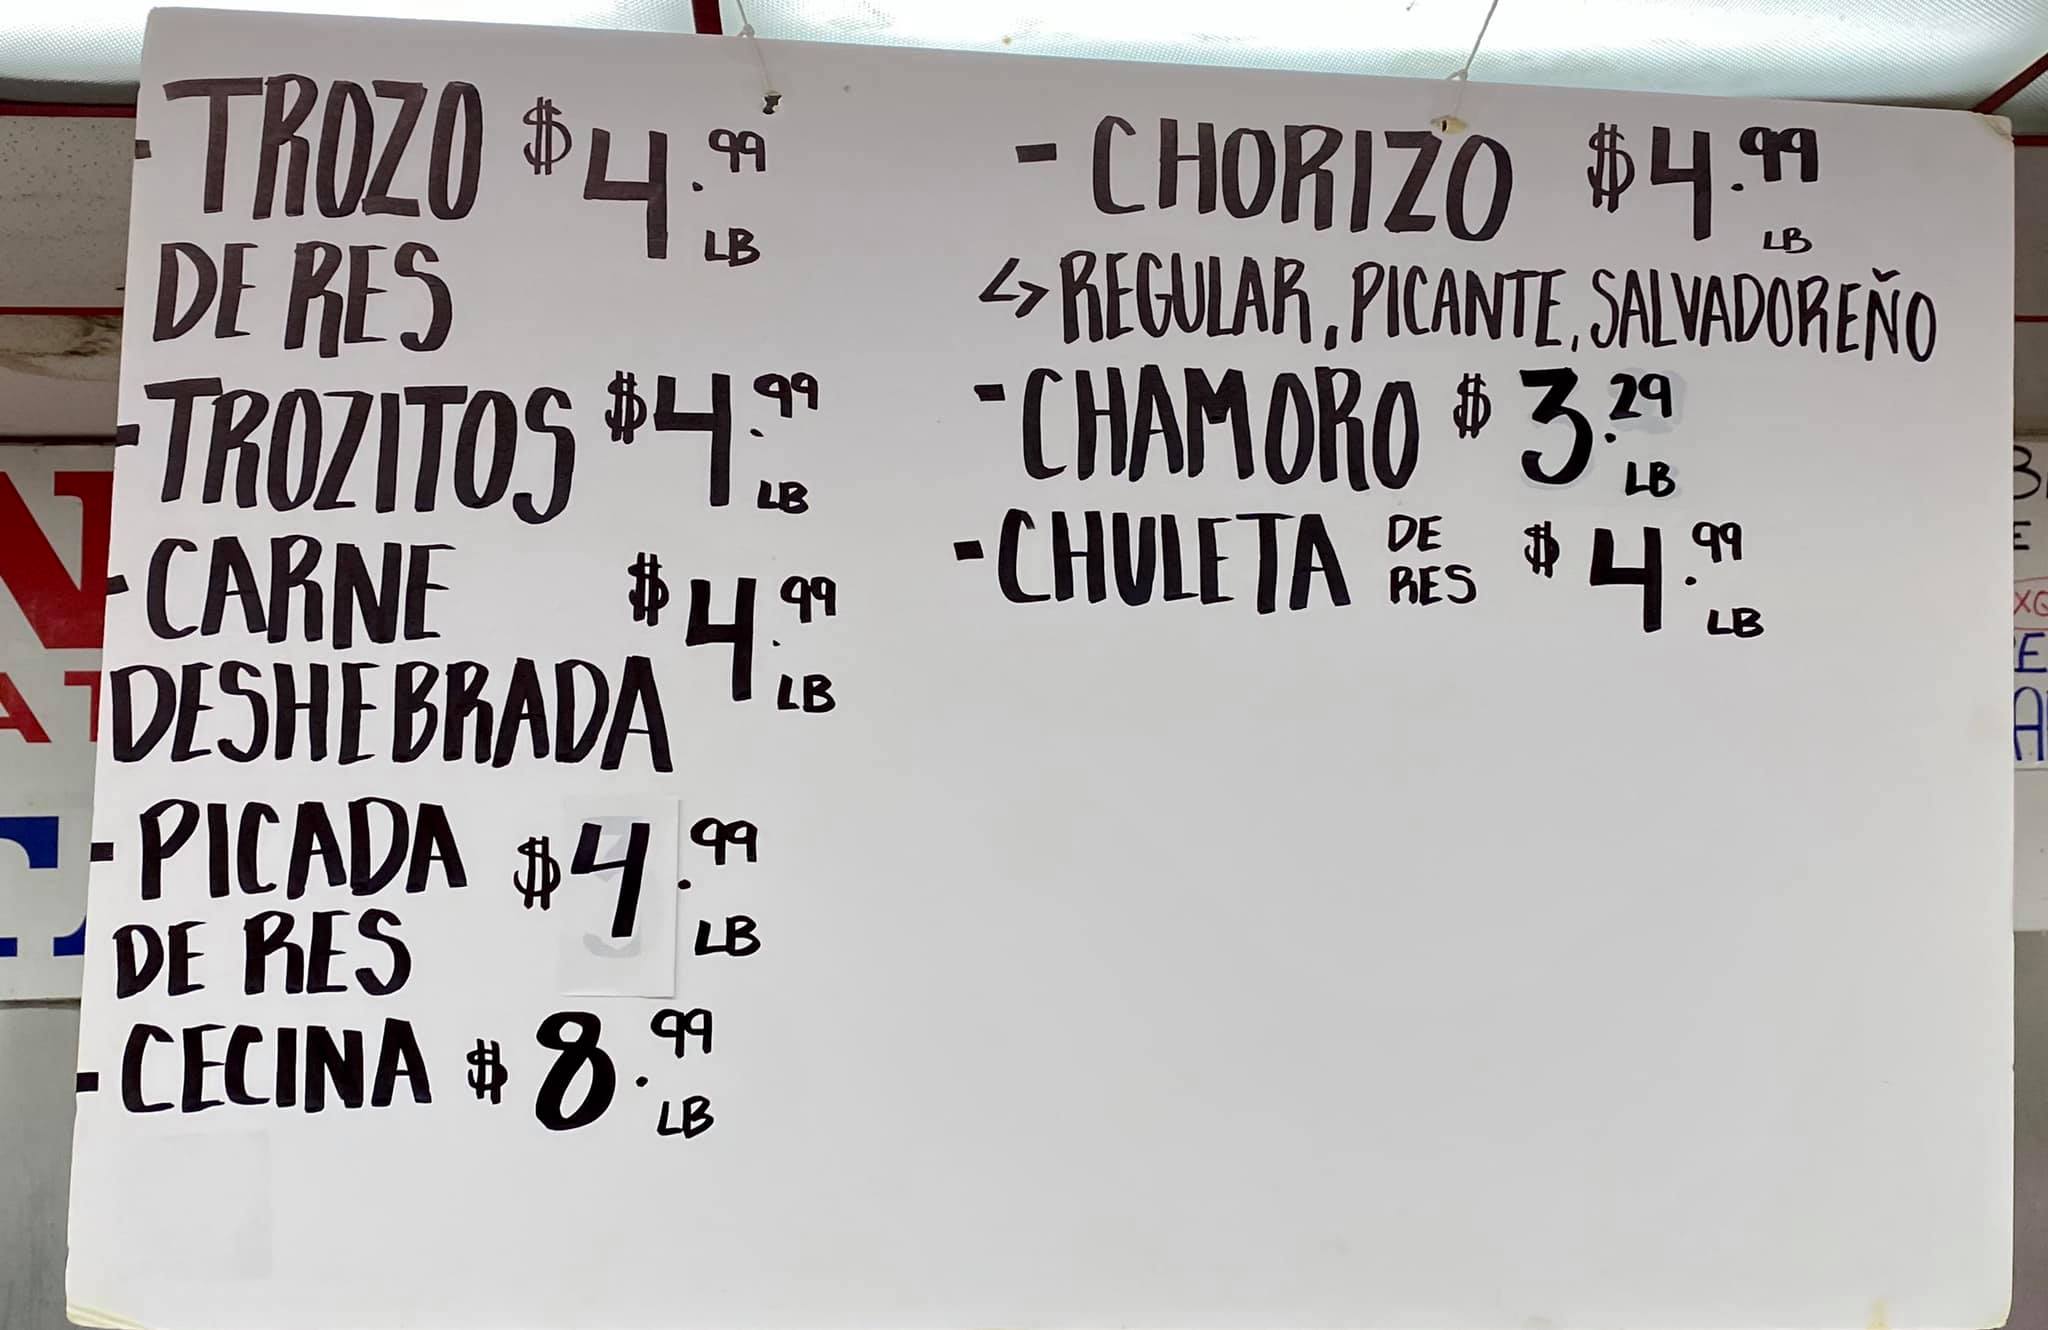 - TROZO $4.99 LB
DE RES
- TROZITOS $4.99 LB
- CARNE $4.99 LB
DESHEBRADA
- PICADA $4.99 LB
DE RES
- CECINA $8.99 LB
- CHORIZO $4.99 LB
↳ REGULAR, PICANTE, SALVADOREÑO
- CHAMORO $3.29 LB
- CHULETA DE RES $4.99 LB